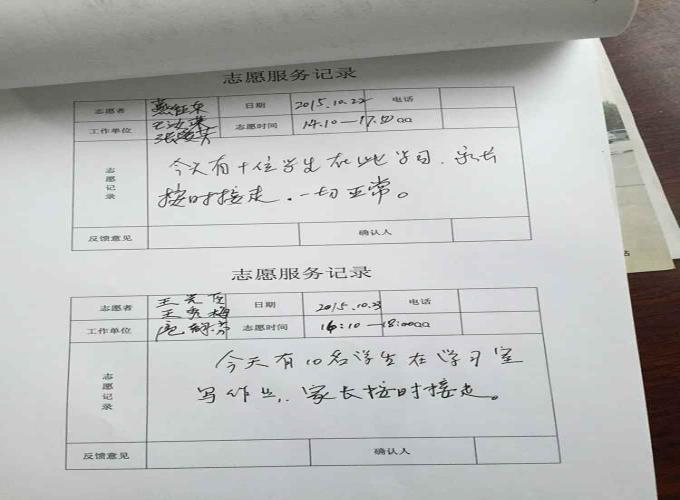 志愿服务记录
志愿者 日期 2015.10.22 电话
工作单位 志愿时间 14:10—17:50
志愿记录
今天有十位学生在此学习.家长
按时接走.一切正常。
反馈意见 确认人
志愿服务记录
志愿者 日期 2015.10.23 电话
王秀梅
工作单位 志愿时间 16:10—18:00
志愿记录
今天有10名学生在学习室
写作业,家长按时接走。
反馈意见 确认人